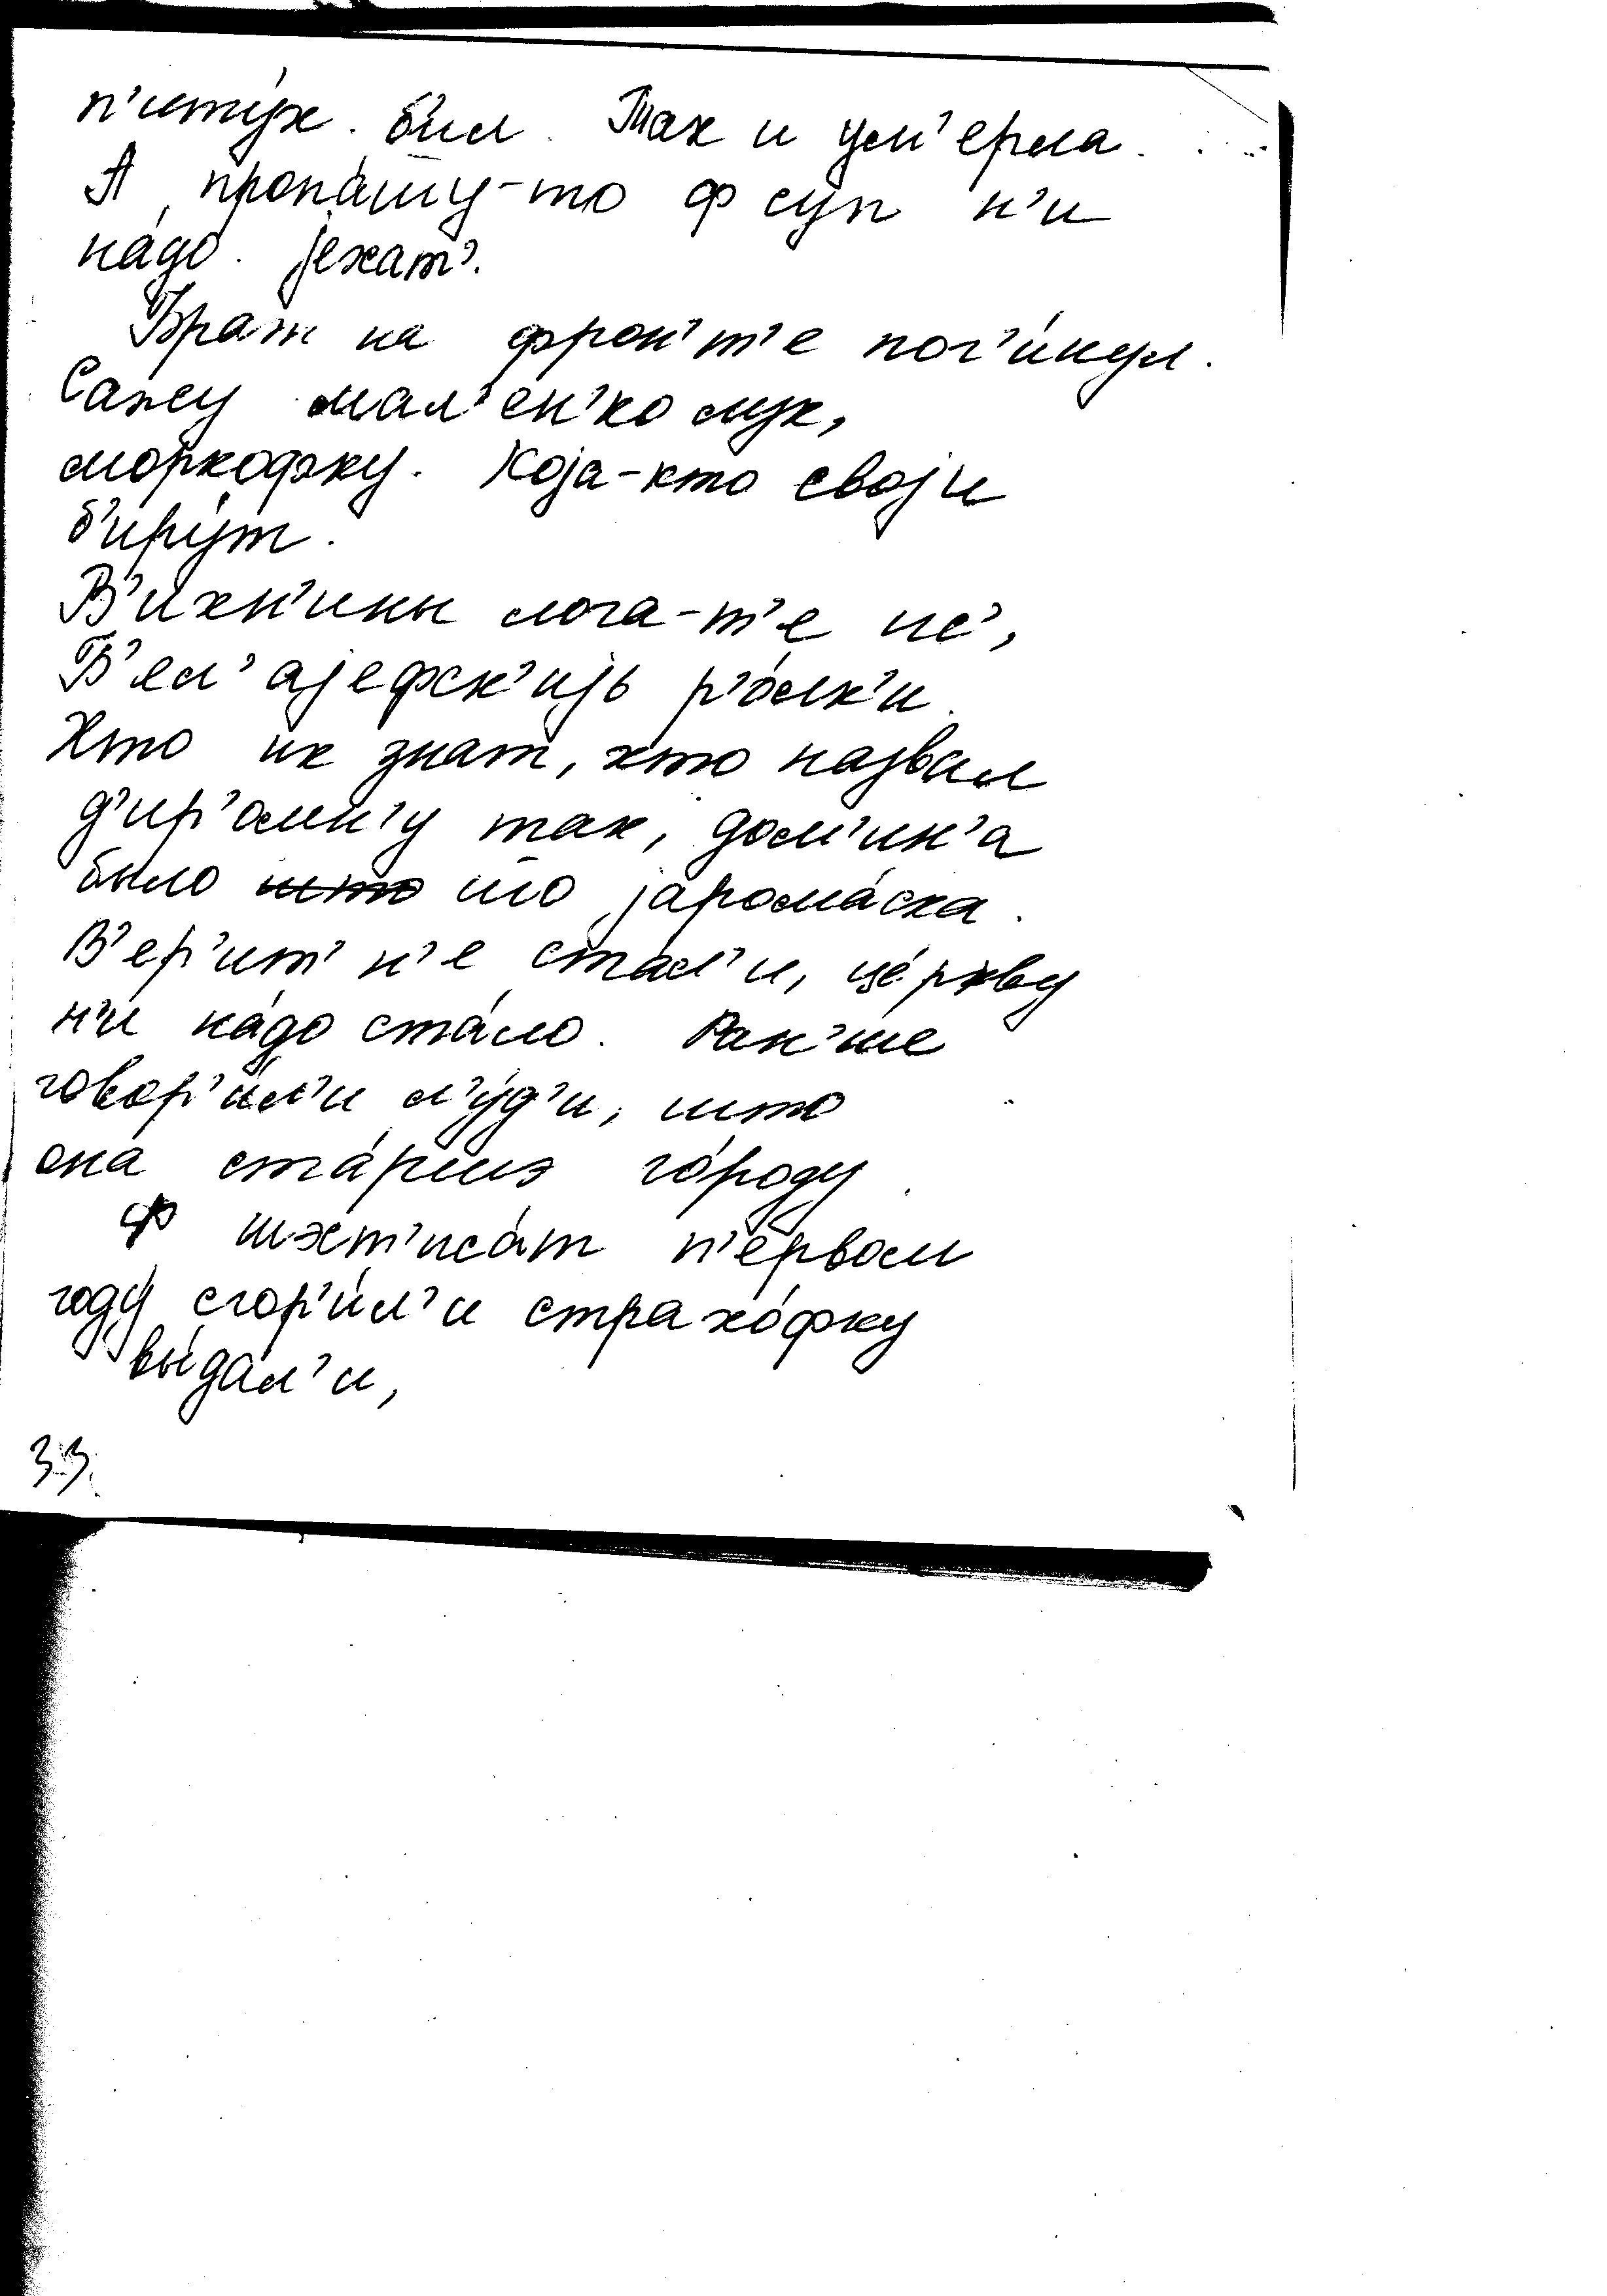 п'иту́х. был. Так и ум'ерла.
А пропа́шу-то ф суп н'и
на́до. jехат'.
Брат на фрон'т'е пог'и́нул.
Сажу мал'ен'ко лук,
моркофку. Коjа-кто своjи
б'иру́т.
В'ихн'ины лога-т'е не,
Б'ел'аjефск'иjь р'о́лк'и.
Хто их знат, хто назвал
д'ир'омн'у так, дом'ин'а
было што jарома́ска.
В'ер'ит' н'е стал'и, це́ркву
н'и на́до ста́ло. Ран'ше
говор'и́л'и л'у́д'и, што
она ста́ршэ го́роду.
Ф шэст'иса́т п'е́рвом
году́ сгор'и́л'и страхо́фку
вы́дал'и,
33.